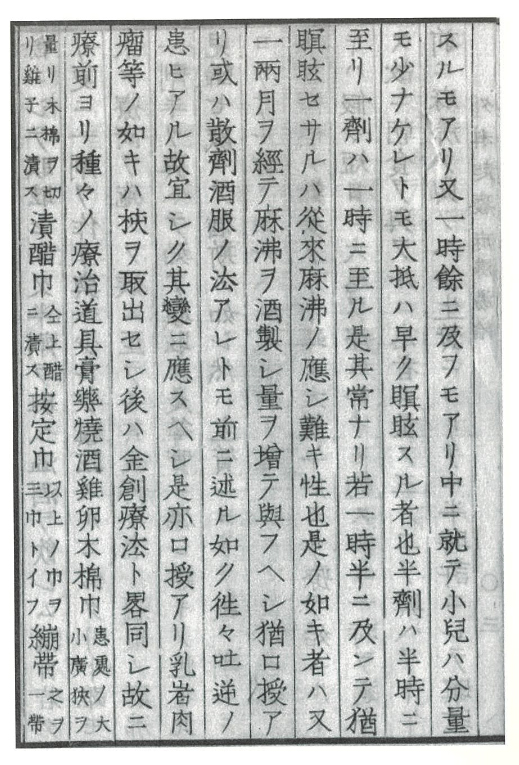 スルモアリ又一時餘ニ及フモアリ中ニ就テ小兒ハ分量
モ少ナケレトモ大抵ハ早ク瞑眩スル者也半劑ハ半時ニ
至リ一劑ハ一時ニ至ル是其常ナリ若一時半ニ及ンテ猶
瞑眩セサルハ從來麻沸ノ應シ難キ性也是ノ如キ者ハ又
一兩月ヲ經テ麻沸ヲ酒製シ量ヲ增テ與フヘシ猶口授ア
リ或ハ散劑酒服ノ法アレトモ前ニ述ル如ク徃々吐逆ノ
患ヒアル故宜シク其變ニ應スヘシ是亦口授アリ乳岩肉
瘤等ノ如キハ挾ヲ取出セシ後ハ金創療法ト畧同シ故ニ
療前ヨリ種々ノ療治道具膏藥燒酒雞卵木棉巾患裏ノ大小廣狹ヲ
量リ木棉ヲ切リ雞子ニ漬ス漬醋巾仝上醋ニ漬ス按定巾以上ノ巾ヲ三巾トイフ繃帶之ヲ一帶